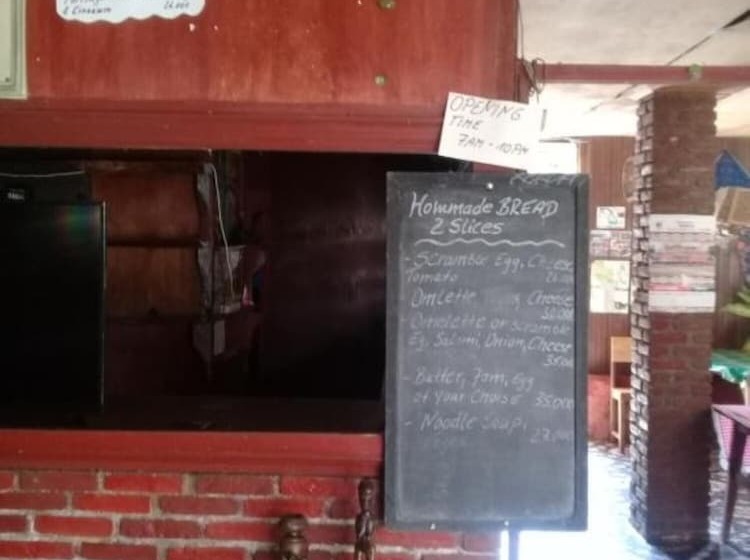 & Cinnamon
OPENING
TIME
7AM - 10PM
Hommade BREAD
2 Slices
- Scrambee Egg, Cheese
Tomato
Omlette Cheese
- Omelette or Scramble
Eg, Salami, Onion, Cheese
35.000
- Butter, Jam, Egg
of Your Choise 35.000
- Noodle Soup
27.000